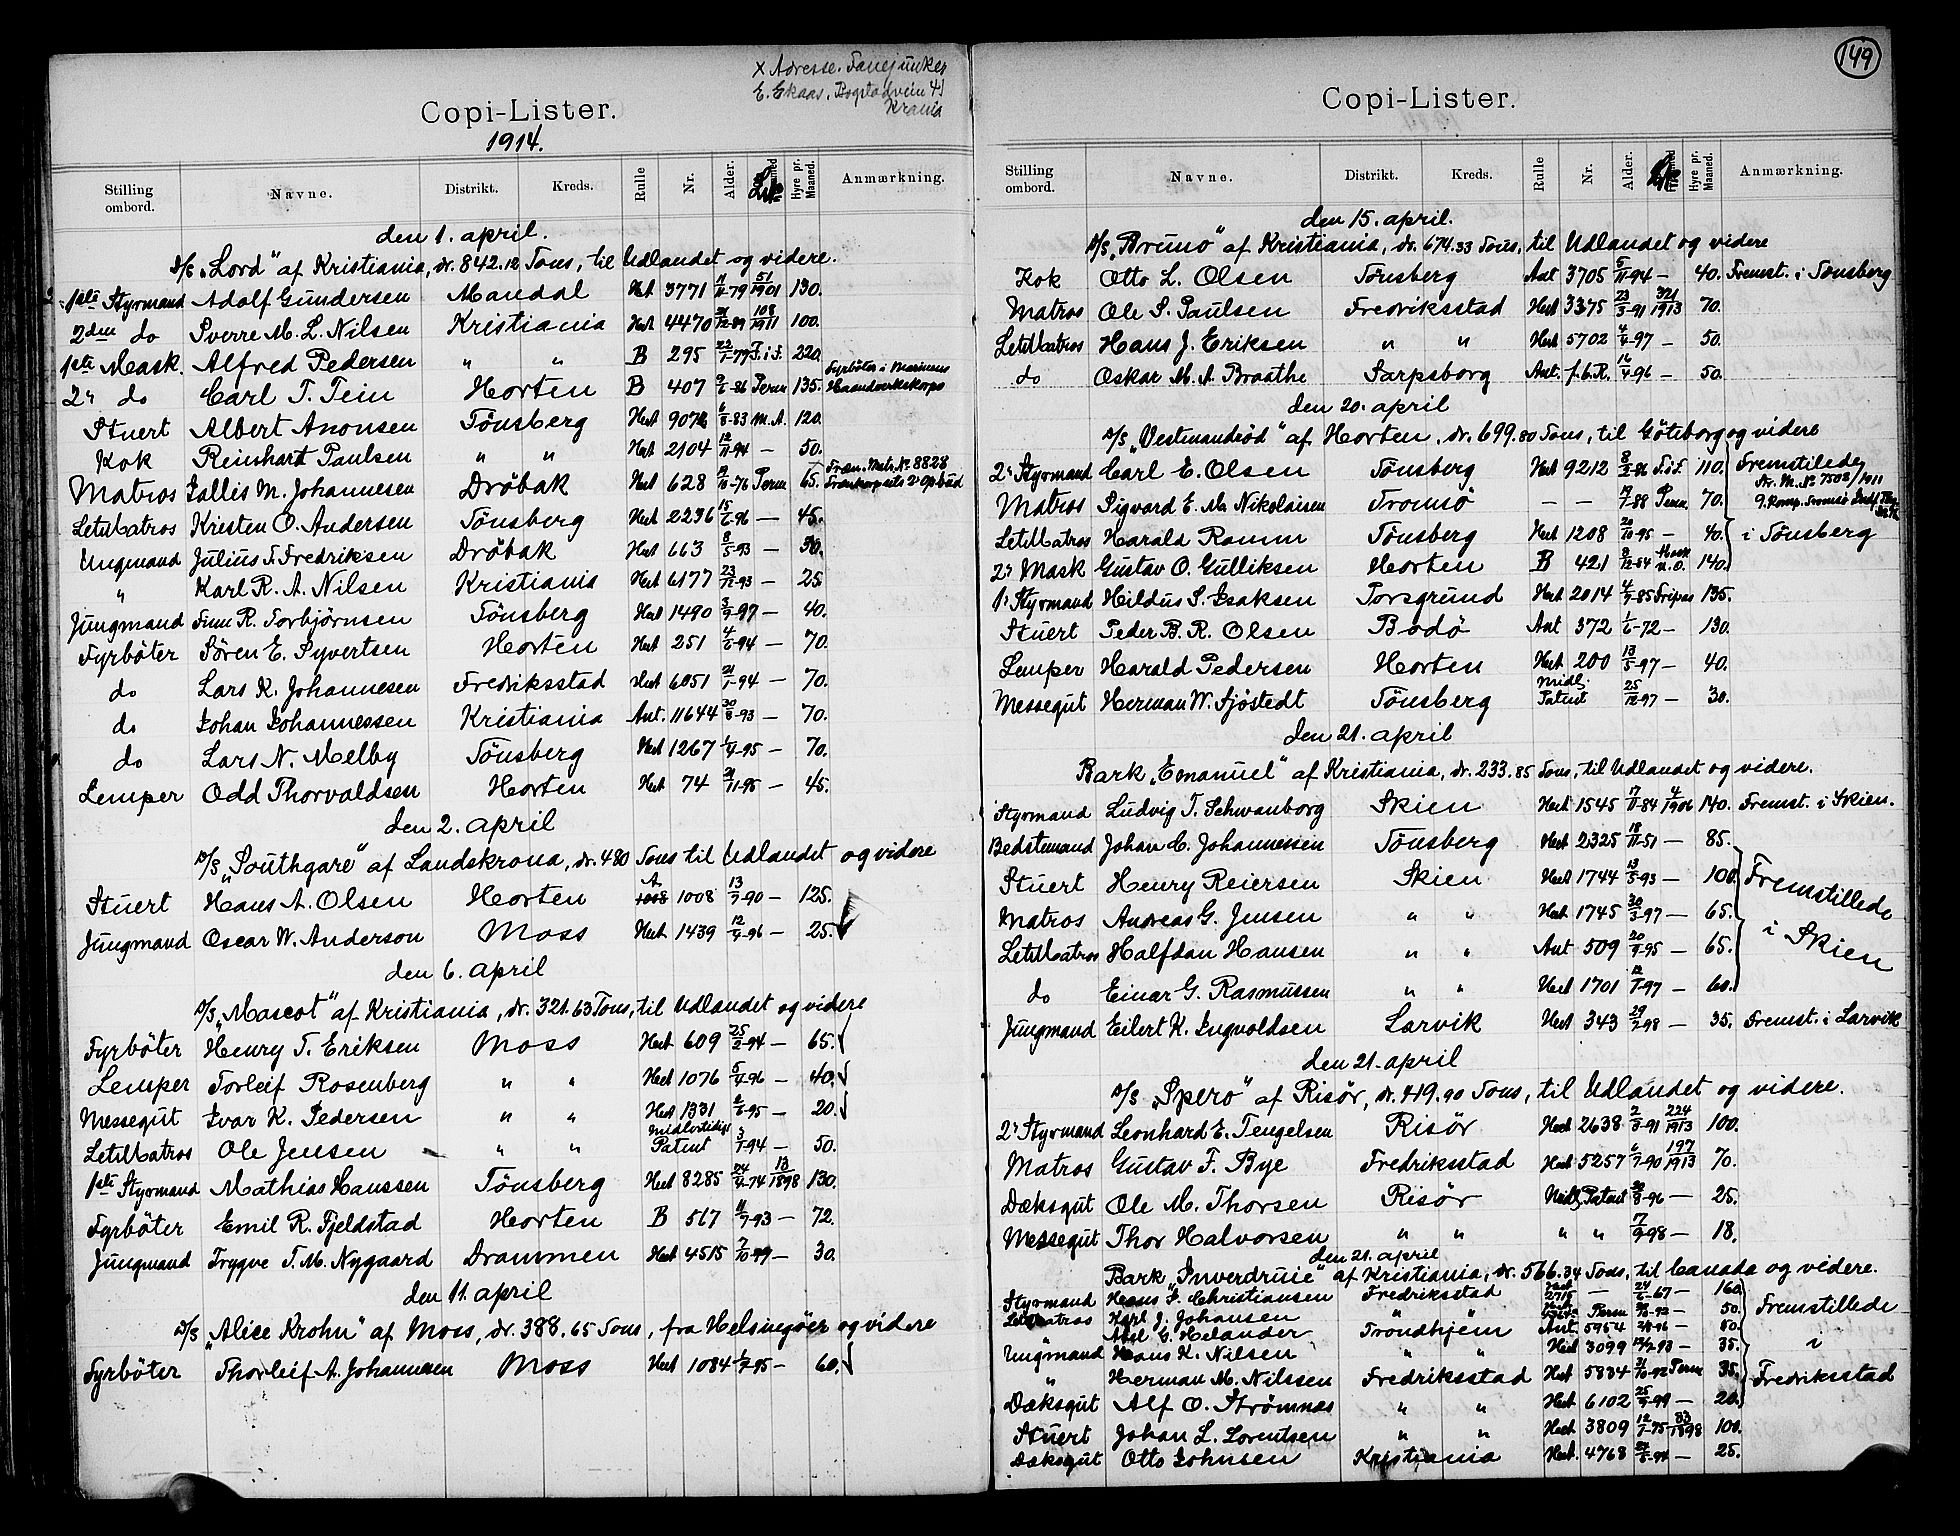 X Adresse. Fanejunker
E. Ekaas, Bogstadveien 41
Krania
Copi-Lister.
1914.
Stilling ombord. Navne. Distrikt. Kreds. Rulle Nr. Alder. Hyre pr. Maaned. Anmærkning.
den 1. april.
D/S „Lord" af Kristiania, dr. 842.12 Tons, til Udlandet og videre.
1ste Styrmand Adolf Gundersen Mandal Hert 3771 11/11-79 51/1901 130.
2den do Sverre M. L. Nilsen Kristiania Hert 4470 21/12-89 108/1911 100.
1ste Mask. Alfred Pedersen " " B 295 22/1-79 F.i.F. 220.
2" do Carl T. Tein Horten B 407 9/6-86 Perm 135. Fyrböter i Marinens Haandverkskorps
Stuert Albert Anonsen Tönsberg Hert 9072 6/8-83 M.A. 120.
Kok Reinhart Paulsen " " Hert 2104 12/11-94 — 50.
Matros Jallis M. Johannesen Dröbak Hert 628 12/10-76 Perm 65. Fræn. Mnts. No. 8828
LetMatros Kristen O. Andersen Tönsberg Hert 2236 15/6-96 — 45.
Ungmand Julius T. Fredriksen Dröbak Hert 663 8/5-93 — 30.
" Karl R. A. Nilsen Kristiania Hert 6177 23/12-93 — 25
Jungmand Finn R. Torbjörnsen Tönsberg Hert 1490 3/9-97 — 40.
Fyrböter Sören E. Syvertsen Horten Hert 251 4/6-94 — 70.
do Lars K. Johannesen Fredriksstad Hert 6051 21/1-94 — 70.
do Johan Johannessen Kristiania Ant. 11644 30/8-93 — 70.
do Lars N. Melby Tönsberg Hert 1267 1/4-95 — 70.
Lemper Odd Thorvaldsen Horten Hert 74 21/11-95 — 45.
den 2. april
D/S „Southgare" af Landskrona, dr. 480 Tons til Udlandet og videre
Stuert Hans A. Olsen Horten A 1008 13/7-90 — 125.
Jungmand Oscar W. Anderson Moss Hert 1439 12/4-96 — 25.
den 6. april
D/S „Mascot" af Kristiania, dr. 321.63 Tons, til Udlandet og videre
Fyrböter Henry T. Eriksen Moss Hert 609 25/2-94 — 65.
Lemper Torleif Rosenberg " " Hert 1076 5/4-96 — 40.
Messegut Ivar K. Pedersen " " Hert 1331 2/6-95 — 20.
LetMatros Ole Jensen " " Midlertidigt Patent 3/7-94 — 50.
1ste Styrmand Mathias Hanssen Tönsberg Hert 8285 24/4-74 13/1898 130.
Fyrböter Emil R. Fjeldstad Horten B 567 11/7-93 — 72.
Jungmand Trygve T. M. Nygaard Drammen Hert 4515 7/10-99 — 30.
den 11. april
D/S „Alice Krohn" af Moss, dr. 388.65 Tons, fra Helsingöer og videre
Fyrböter Thorleif A. Johannesen Moss Hert 1084 1/7-95 — 60.
149
Copi-Lister.
Stilling ombord. Navne. Distrikt. Kreds. Rulle Nr. Alder. Hyre pr. Maaned. Anmærkning.
den 15. april.
D/S „Bruno" af Kristiania, dr. 674.33 Tons, til Udlandet og videre
Kok Otto L. Olsen Tönsberg Ant 3705 5/11-94 — 40. Fremst. i Tönsberg
Matros Ole S. Paulsen Fredriksstad Hert 3375 23/3-91 321/1913 70.
LetMatros Hans J. Eriksen " " Hert 5702 4/4-97 — 50.
do Oskar M. A. Braathe Sarpsborg Ant. f.b.R. 16/4-96 — 50.
den 20. april
D/S „Vestmandröd" af Horten, dr. 699.80 Tons, til Göteborg og videre
2. Styrmand Carl E. Olsen Tönsberg Hert 9212 8/3-86 F.i.F. 110. Fremstilede
Matros Sigvard E. M. Nikolaisen Tromsö — — 19/7-88 Perm. 70. Ar. M. No 7502/1911
LetMatros Harald Ramm Tönsberg Hert 1208 20/10-95 — 40. i Tönsberg
2. Mask Gustav O. Gulliksen Horten B 421 8/12-84 Mask u.o. 140.
1. Styrmand Hildus S. Isaksen Porsgrund Hert 2014 4/9-85 Fripas 135.
Stuert Peder B. R. Olsen Bodö Ant 372 1/6-72 — 130.
Lemper Harald Pedersen Horten Hert 200 13/5-97 — 40.
Messegut Herman W. Sjöstedt Tönsberg Midl. Patent 25/12-97 — 30.
den 21. april
Bark „Emanuel" af Kristiania, dr. 233.85 Tons, til Udlandet og videre.
Styrmand Ludvig T. Schwanborg Skien Hert 1545 17/11-84 4/1906 140. Fremst. i Skien.
Bedstemand Johan C. Johannessen Tönsberg Hert 2325 18/11-51 — 85.
Stuert Henry Reiersen Skien Hert 1744 13/5-93 — 100. Fremstillede
Matros Andreas G. Jensen " " Hert 1745 30/3-97 — 65.
LetMatros Halfdan Hansen " " Ant 509 20/9-95 — 65. i Skien
do Einar G. Rasmussen " " Hert 1701 12/7-97 — 60.
Jungmand Eilert K. Ingvoldsen Larvik Hert 343 29/7-98 — 35. Fremst. i Larvik
den 21. april
D/S „Spero" af Risør, dr. 419.90 Tons, til Udlandet og videre.
2. Styrmand Leonhard E. Tengelsen Risør Hert 2638 2/3-91 224/1913 100.
Matros Gustav F. Bye Fredriksstad Hert 5257 6/7-90 197/1913 70.
Dæksgut Ole M. Thorsen Risør Midl. Patent 30/8-96 — 25.
Messegut Thor Halvorsen " " " " 7/9-98 — 18.
den 21. april
Bark „Inverdruie" af Kristiania, dr. 566.34 Tons, til Canada og videre.
Styrmand Hans F. Christiansen Fredriksstad Hert 2715 — 24/6-67 — 160.
LetMatros Karl J. Johansen " " Perm — 50. Fremstillede
Axel G. Helander Trondhjem Ant. 5954 — 50.
Ungmand Hans K. Nilsen " " Hert 3099 — 35. i
" Herman M. Nilssen Fredriksstad Hert 5834 31/10-92 Perm 35. Fredriksstad
Dæksgut Alf O. Strömnæs " " Hert 6102 25/5-99 — 20.
Stuert Johan L. Lorentsen " " Hert 3809 12/7-75 83/1898 100.
Dæksgut Otto Johnsen Kristiania Hert. 4768 — 25.